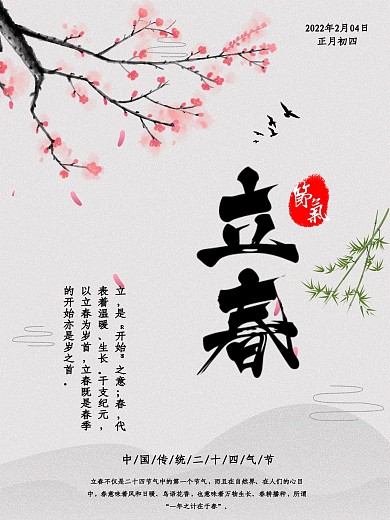 2022年2月04日
正月初四
節氣
立春
立，是“开始”之意；春，代
表着温暖、生长。干支纪元，
以立春为岁首，立春既是春季
的开始亦是岁之首。
中/国/传/统/二/十/四/气/节
立春不仅是二十四节气中的第一个节气，而且在自然界、在人们的心目
中，春意味着风和日暖、鸟语花香，也意味着万物生长、春耕播种，所谓
“一年之计在于春”。